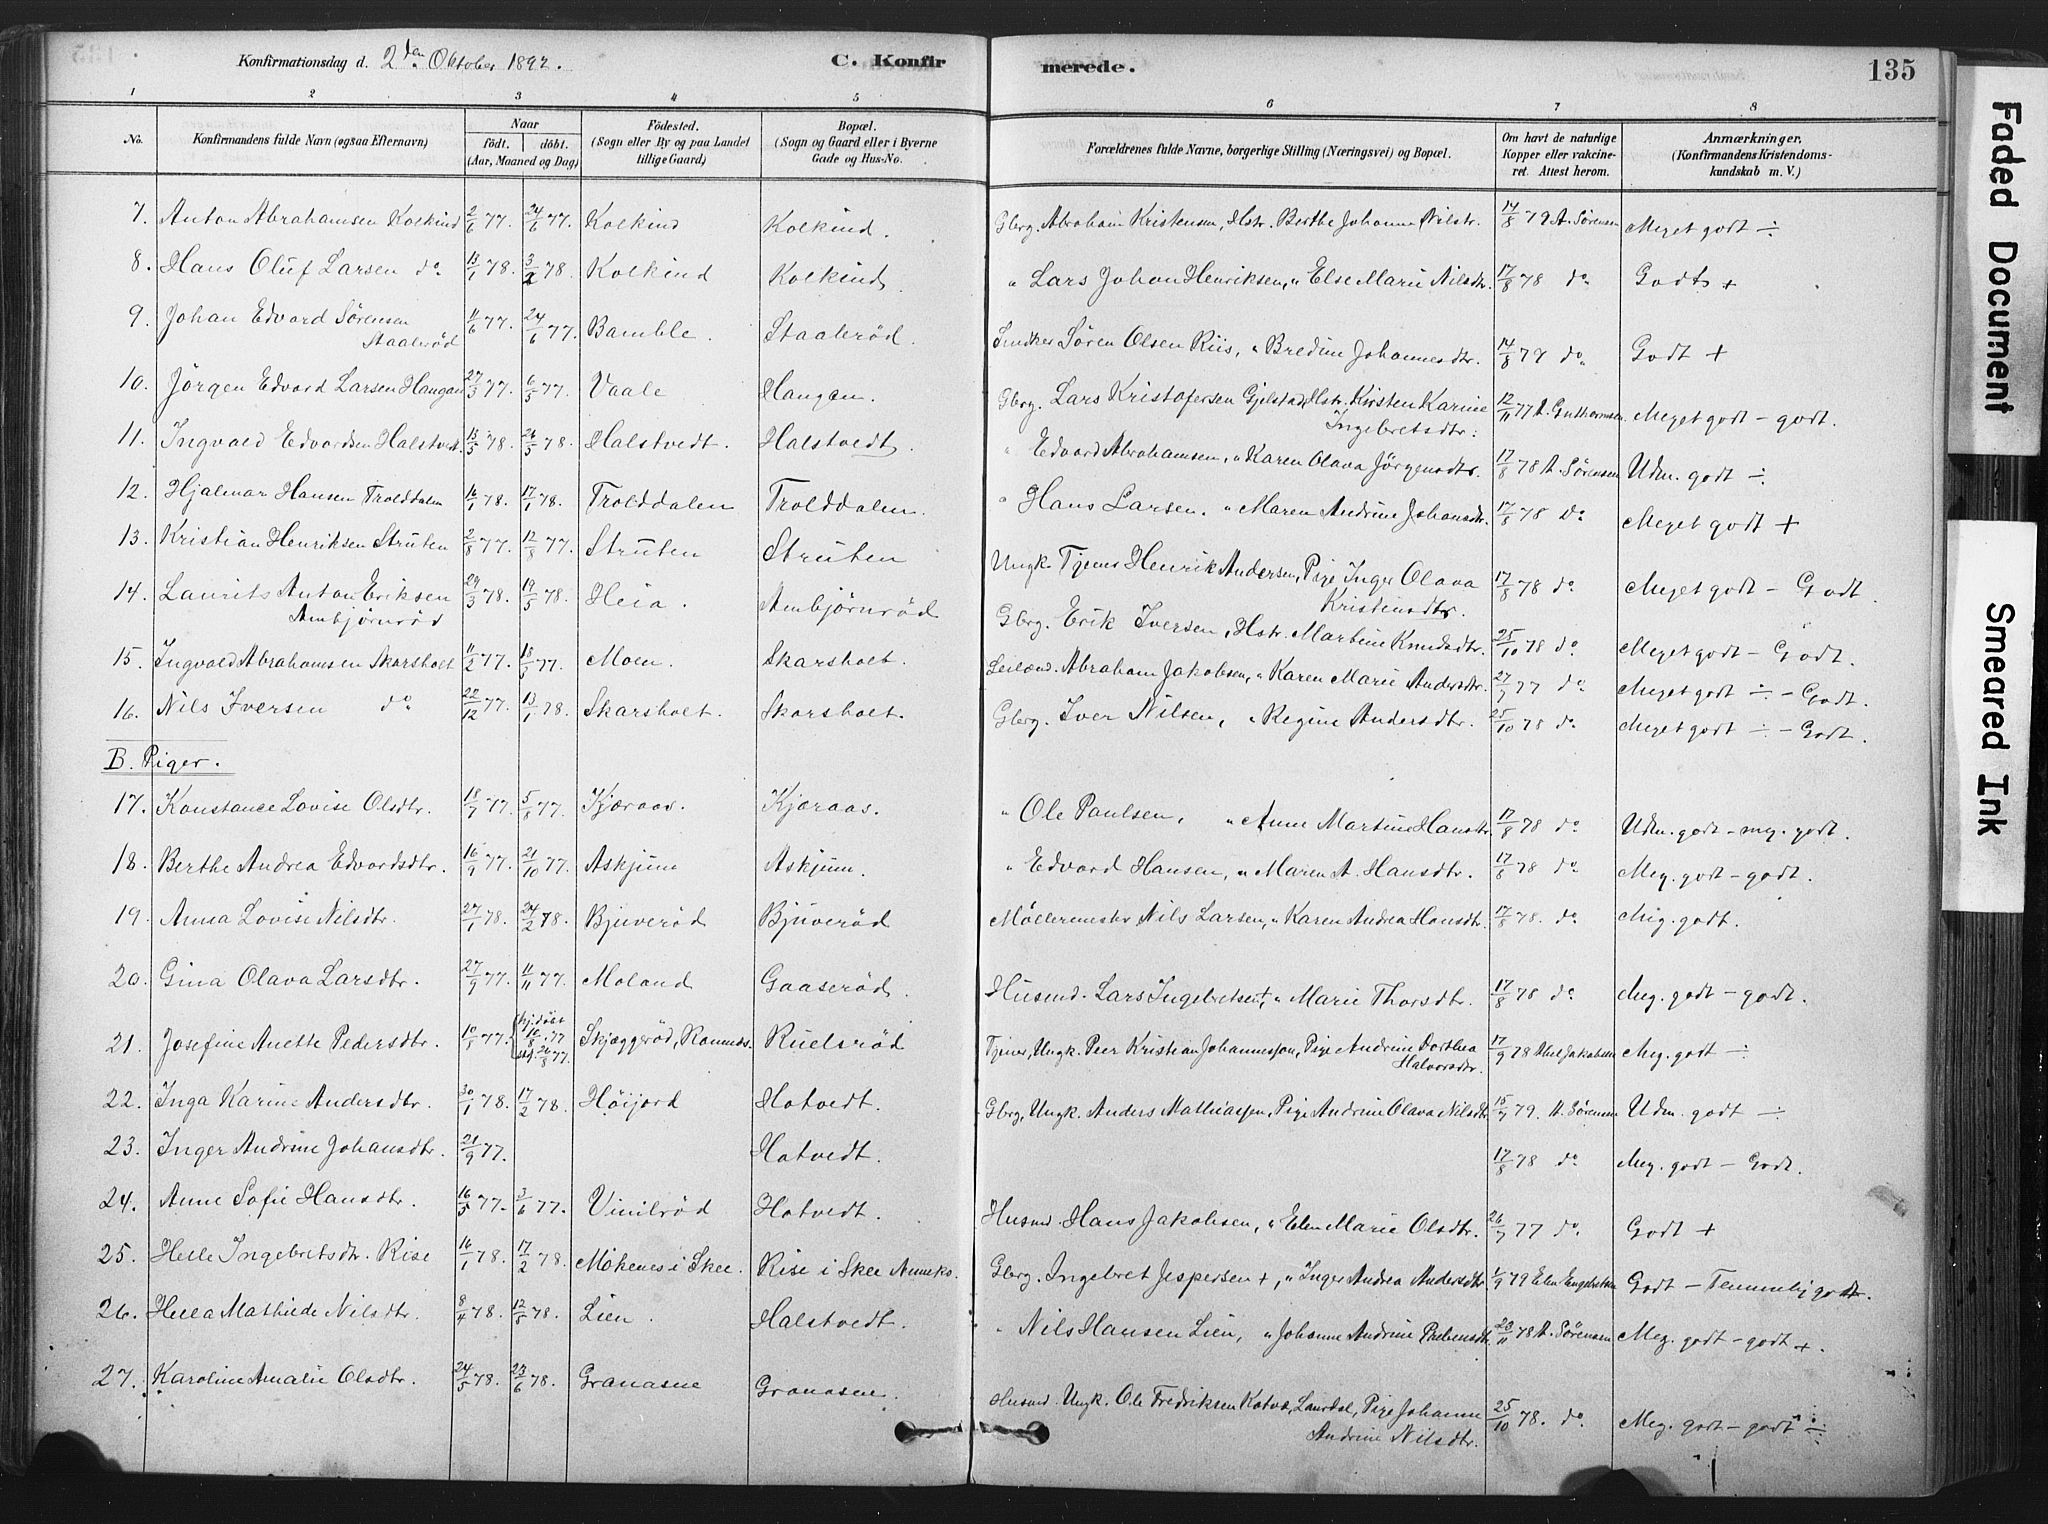 Konfirmationsdag d. 2den Oktober 1892. C. Konfirmerede. 135
1 2 3 4 5 6 7 8
No. Konfirmandens fulde Navn (ogsaa Efternavn) Naar födt. döbt. (Aar, Maaned og Dag) Födested. (Sogn eller By og paa Landet tillige Gaard) Bopæl. (Sogn og Gaard eller i Byerne Gade og Hus-No. Forældrenes fulde Navne, borgerlige Stilling (Næringsvei) og Bopæl. Om havt de naturlige Kopper eller vakcineret. Attest herom. Anmærkninger, (Konfirmandens Kristendomskundskab m. V.)
7. Anton Abrahamsen Kolkind 2/6 77. 24/6 77. Kolkind Kolkind. Gbrg. Abraham Kristensen, Hstr. Berthe Johanne Nilsdtr. 14/8 79 A. Sørensen Meget godt ÷
8. Hans Oluf Larsen do 13/1 78. 3/2 78. Kolkind Kolkind. " Lars Johan Henriksen, " Else Marie Nilsdtr. 17/8 78 do Godt +
9. Johan Edvard Sørensen Staalerød 11/6 77. 24/6 77. Bamble. Staalerød. Smdker Sören Olsen Riis, " Bredine Johannesdtr. 14/8 79 do Godt +
10. Jørgen Edvard Larsen Haugan 27/3 77. 6/5 77. Vaale Haugan. Gbrg. Lars Kristofersen Gjelstad, Hstr. Kirsten Karine Ingebretsdtr. 12/11 77 A. Guthormsen Meget godt - godt.
11. Ingvald Edvardsen Halstvedt 13/5 78. 26/5 78. Halstvedt. Halstvedt. " Edvard Abrahamsen, " Karen Olava Jörgensdtr. 17/8 78 A. Sørensen Udm. godt ÷
12. Hjalmar Hansen Trolddalen 16/1 78. 17/1 78. Trolddalen Trolddalen. " Hans Larsen, " Maren Andrine Johansdtr. 17/8 78 Do Meget godt +
13. Kristian Henriksen Struten 2/8 77. 12/8 77. Struten Struten Ungk. Tjener Henrik Andersen, Pige Inger Olava Kristensdtr. 17/8 78 do Meget godt - Godt.
14. Laurits Anton Eriksen Ambjørnrød 29/3 78. 19/5 78. Heia. Ambjørnrød Gbrg. Erik Iversen, Hstr. Martine Knudsdtr. 25/10 78 do Meget godt - Godt.
15. Ingvald Abrahamsen Skarsholt 11/2 77. 18/5 77. Moen. Skarsholt. Leilænd. Abraham Jakobsen, " Karen Marie Andersdtr. 27/7 77 do Meget godt ÷ - Godt.
16. Nils Iversen do 22/12 77. 13/1 78. Skarsholt. Skarsholt. Gbrg. Iver Nilsen, " Regine Andersdtr. 25/10 78 do Meget godt ÷ - Godt.
B. Piger.
17. Konstance Lovise Olsdtr. 18/7 77. 5/8 77. Kjæraas. Kjæraas. " Ole Paulsen, " Anne Martine Hansdtr. 17/8 78 do Udm. godt - meg. godt.
18. Berthe Andrea Edvardsdtr. 16/9 77. 21/10 77. Askjum Askjum. " Edvard Hansen, " Maren A. Hansdtr. 17/8 78 do Meg. godt - godt.
19. Anna Lovise Nilsdtr. 27/1 78. 24/2 78. Bjuverød Bjuverød Möllermester Nils Larsen, " Karen Andrea Hansdtr. 17/8 78. do Meg. godt.
20. Gina Olava Larsdtr. 27/9 77. 11/11 77. Moland Gaaserød. Husmd. Lars Ingebretsen +, " Marie Thorsdtr. 17/8 78 do Meg. godt - godt.
21. Josefine Anette Pedersdtr. 10/8 77. hjdöbt 10/8 77 26/8 77. Skjæggerød, Ramnes. Ruelsrød Tjener, Ungk. Peer Kristian Johannessen, Pige Andrine Dorthea Halvorsdtr. 17/9 78 Jakobsen Meg. godt ÷
22. Inga Karine Andersdtr. 30/1 78. 17/2 78. Höijord Hotvedt. Gbrg, Ungk. Anders Mathiassen, Pige Andrine Olava Nilsdtr 15/7 79. A. Sørensen Udm. godt ÷
23. Inger Andrine Johansdtr. 21/9 77. Hotvedt. 17/8 78 do Meg. godt - Godt.
24. Anne Sofie Hansdtr. 16/5 77. 3/6 77. Vinilrød Hotvedt. Husmd. Hans Jakobsen, " Elen Marie Olsdtr. 26/7 77 do Godt +
25. Helle Ingebretsdtr. Rise 16/1 78. 17/2 78. Mökenes i Skee. Rise i Skee Anneks. Gbrg. Ingebret Jespersen +, " Inger Andrea Andersdtr 1/9 79 Elen Engebretsen Godt - Temmelig godt.
26. Hella Mathilde Nilsdtr. 8/4 78. 12/5 78. Lien. Halstvedt. " Nils Hansen Lien, " Johanne Andrine Prebensdtr. 23/11 78 A. Sørensen Meg. godt - godt +.
27. Karoline Amalie Olsdtr. 24/5 78. 23/6 78. Granasne Granasne. Husmd. Ungk. Ole Fredriksen Laurdal, Pige Johanne Andrine Nilsdtr. 25/10 78. do Meg. godt - godt ÷
Faded Document
Smeared Ink